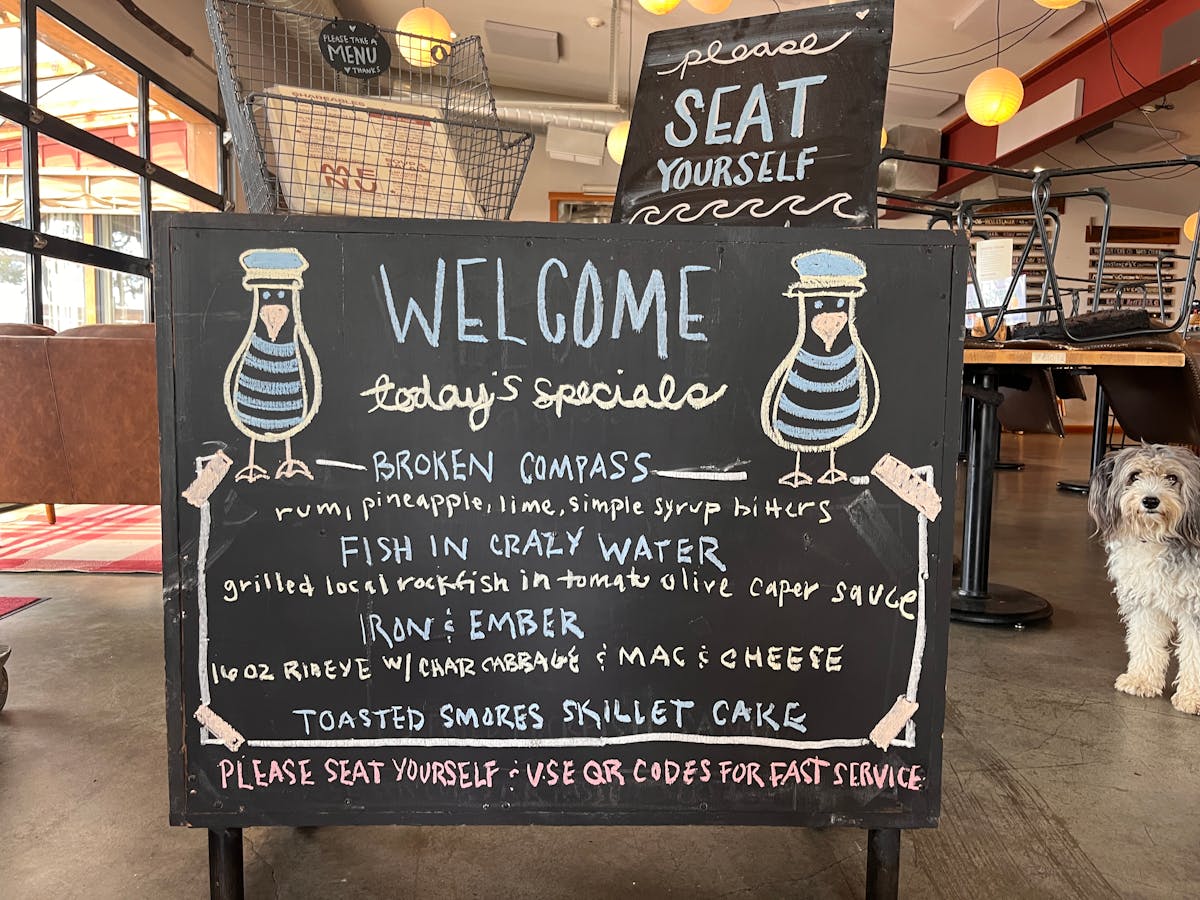 PLEASE TAKE A
MENU
THANKS
SHAREABLES
MENU
please
SEAT
YOURSELF
WELCOME
today's specials
BROKEN COMPASS
rum, pineapple, lime, simple syrup bitters
FISH IN CRAZY WATER
grilled local rockfish in tomato olive caper sauce
IRON & EMBER
16 OZ RIBEYE W/ CHAR CABBAGE & MAC & CHEESE
TOASTED SMORES SKILLET CAKE
PLEASE SEAT YOURSELF & USE QR CODES FOR FAST SERVICE